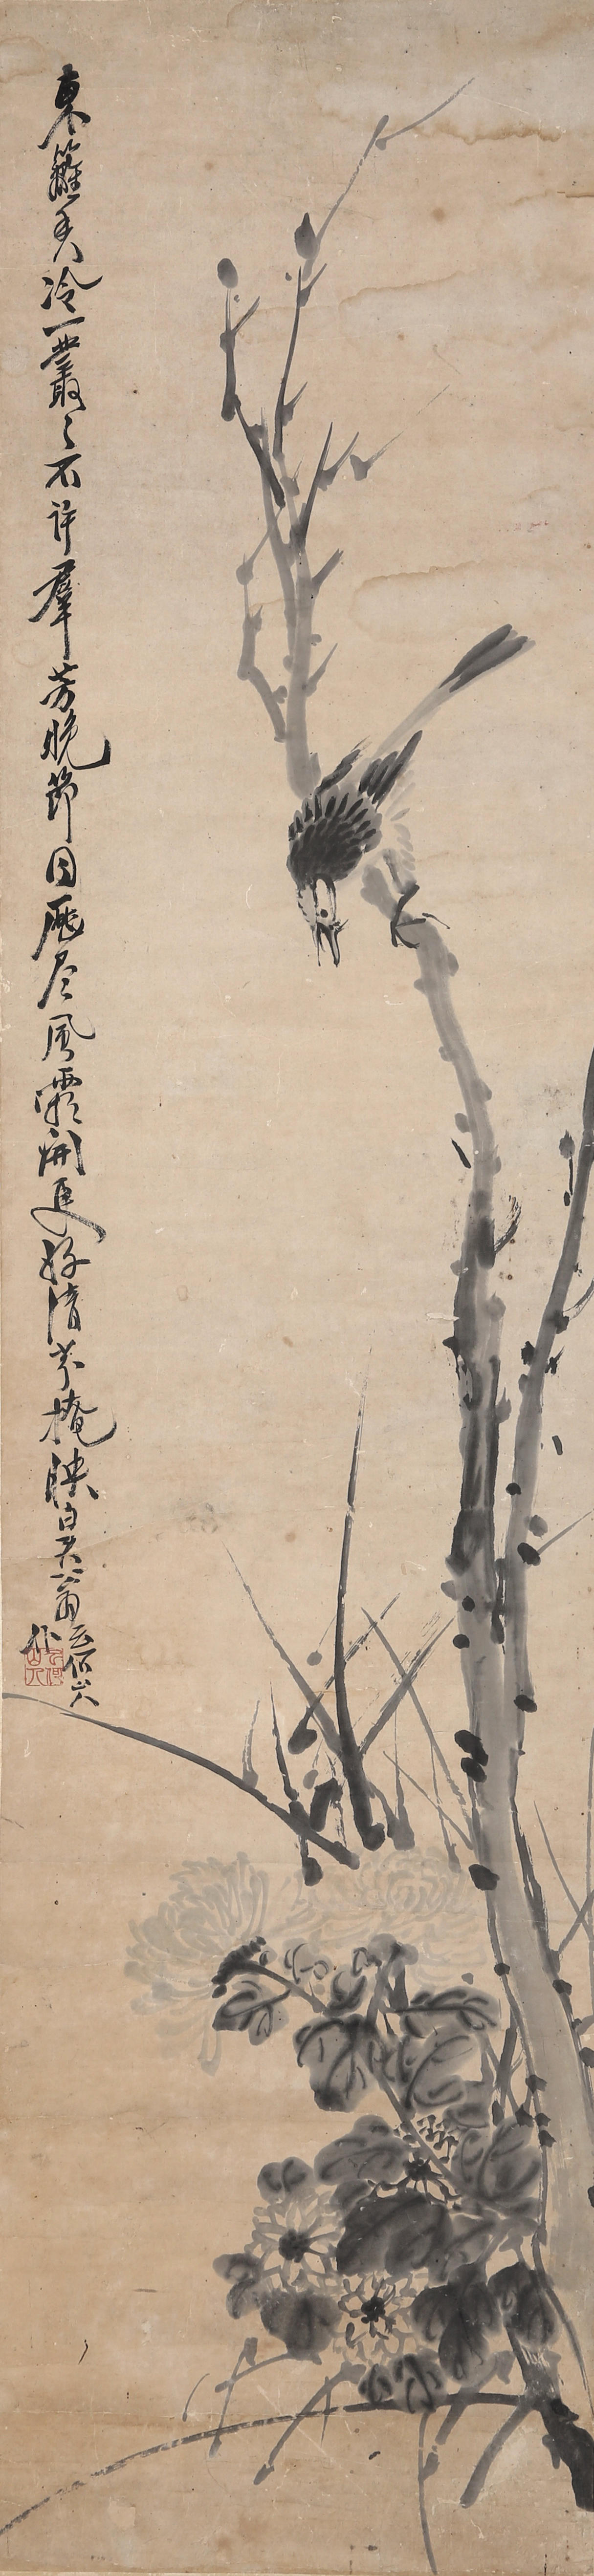 東籬秀冷一叢〻不許羣芳晚節同歷尽風霜開更好清芬掩映白
作